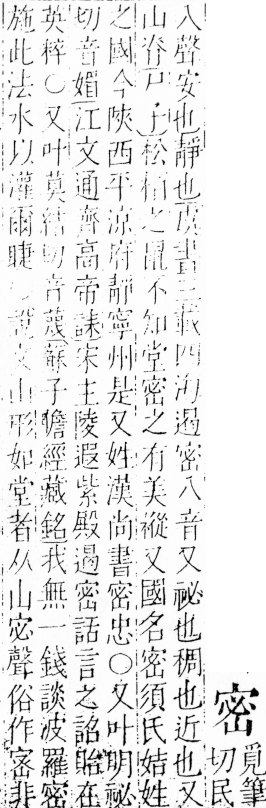 密覓筆切民
入聲安也靜也虞書三載四海遏密八音又祕也稠也近也又
山脊尸子松栢之鼠不知堂密之有美樅又國名密須氏姞姓
之國今陝西平涼府靜寧州是又姓漢尚書密忠○又叶明祕
切音媚江文通齊高帝誄宋主陵遐紫殿遏密話言之詔貽在
英粹○又叶莫結切音蔑蘇子瞻經藏銘我無一錢談波羅密
施此法水以灌爾睫說文山形如堂者从山宓聲俗作宻非